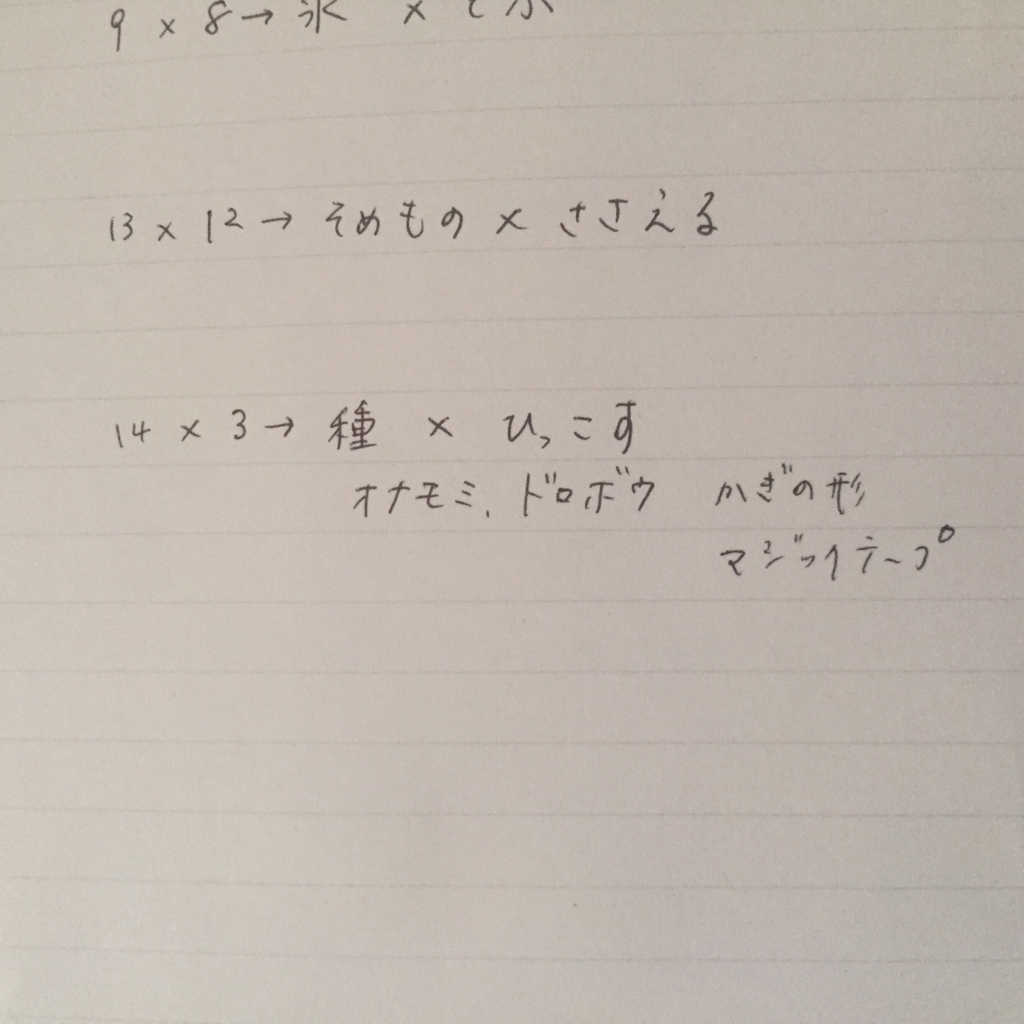 9 × 8→ 氷 × とぶ
13 × 12→ そめもの × ささえる
14 × 3→ 種 × ひっこす
オナモミ、ドロボウ かぎの形
マジックテープ